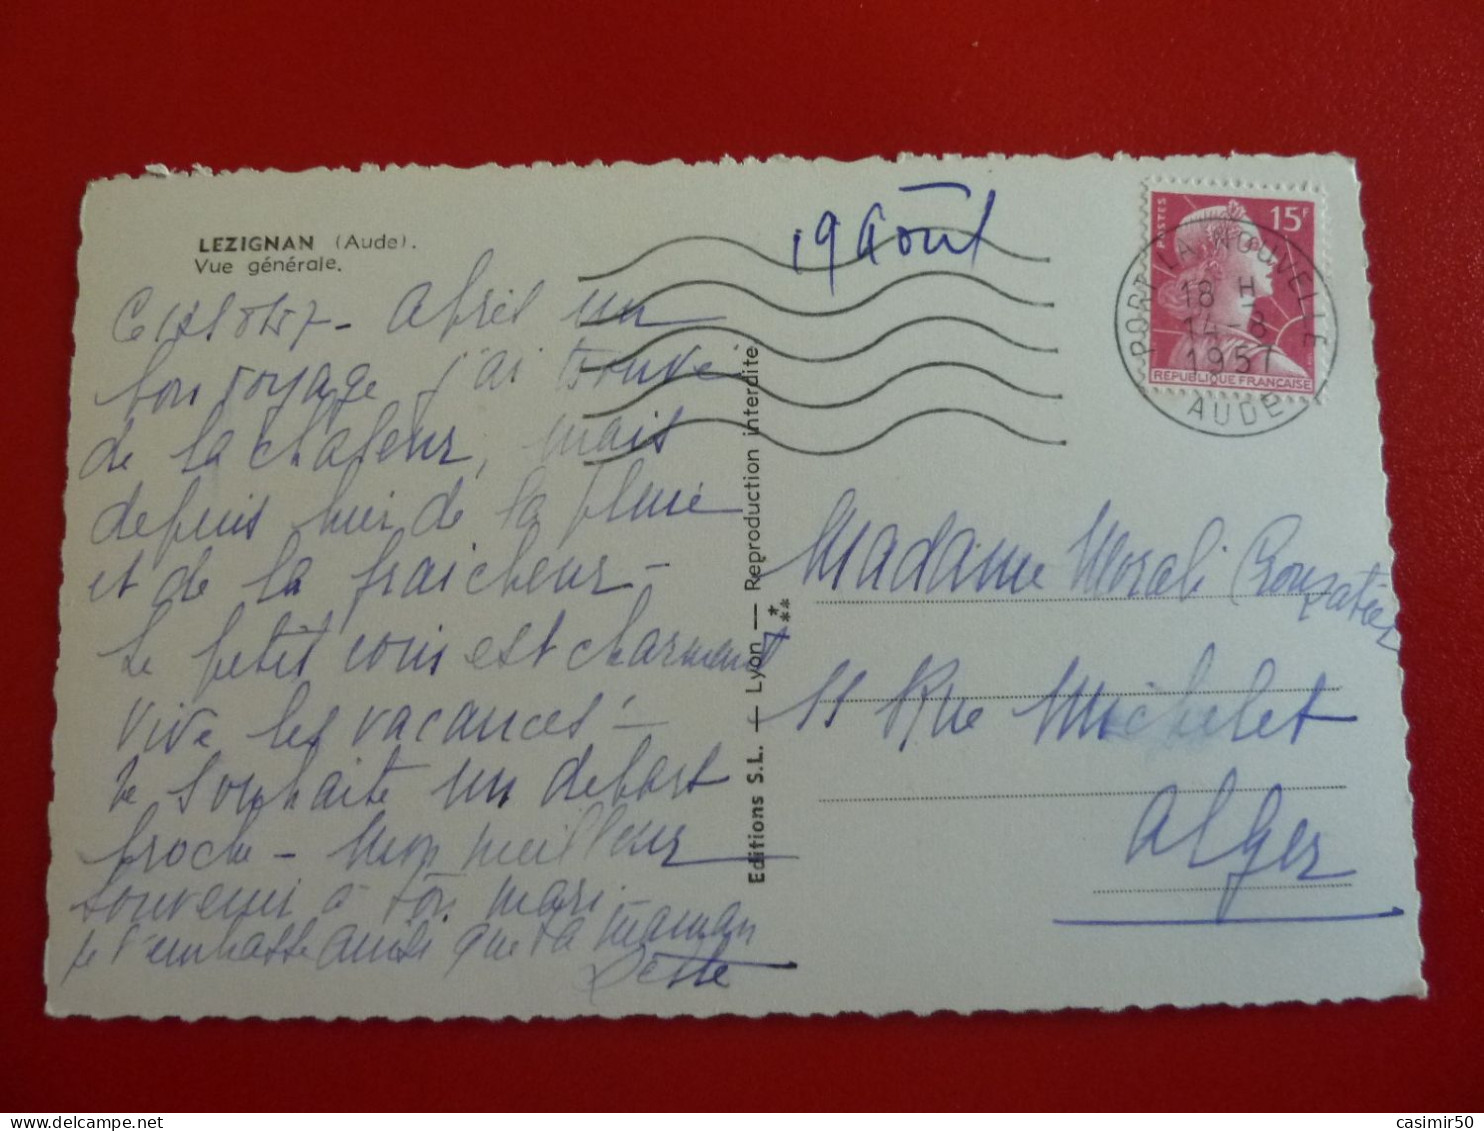 LEZIGNAN (Aude).
Vue générale.
19 Août
15F
POSTES
REPUBLIQUE FRANÇAISE
PORT LA NOUVELLE
18 H
14-8
1957
AUDE
Après un
bon voyage j'ai trouvé
de la chaleur, mais
depuis hier de la pluie
et de la fraicheur -
Le petit coin est charmant
Vive les vacances -
Je souhaite un départ
proche - Mon meilleur
souvenir à ton mari
je t'embrasse ainsi que ta maman
Editions S.L. — Lyon — Reproduction interdite
Madame Morali
11 Rue Michelet
Alger
casimir50